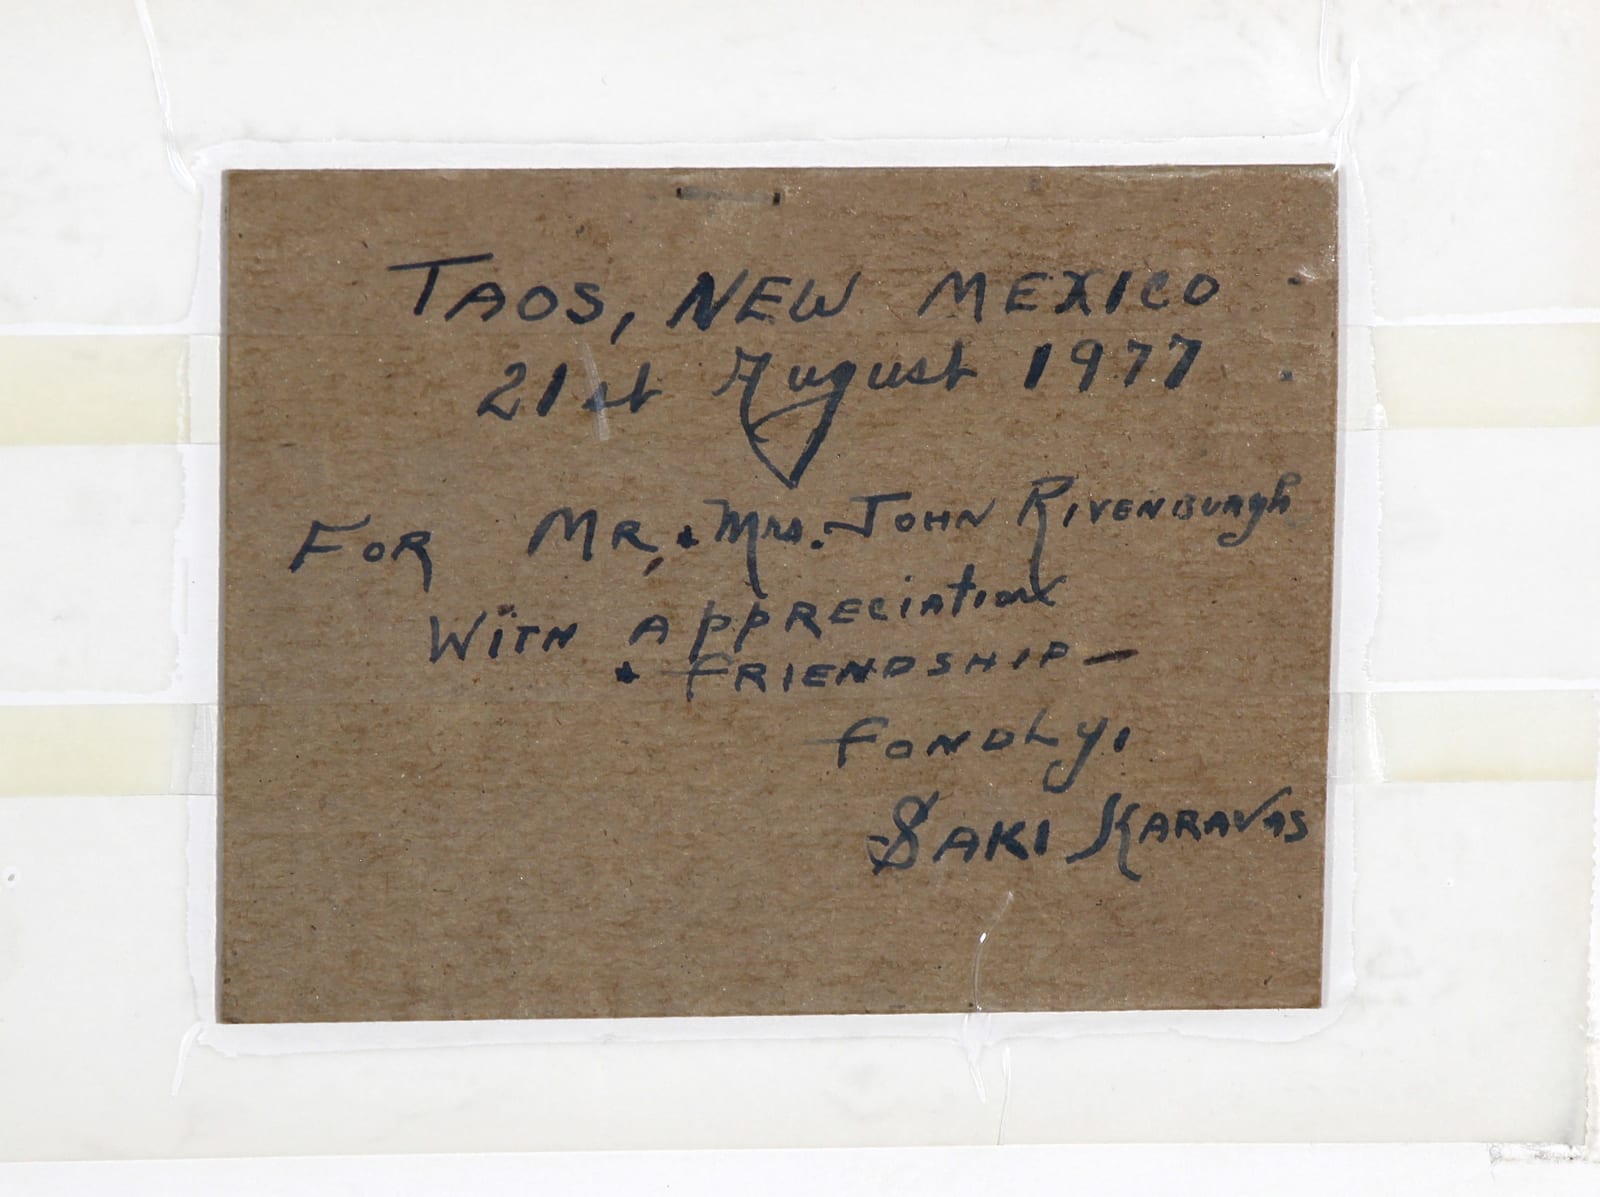 TAOS, NEW MEXICO
21st August 1977
FOR MR. & Mrs. JOHN RIVENBURGH
WITH APPRECIATION
& FRIENDSHIP —
FONDLY,
SAKI KARAVAS